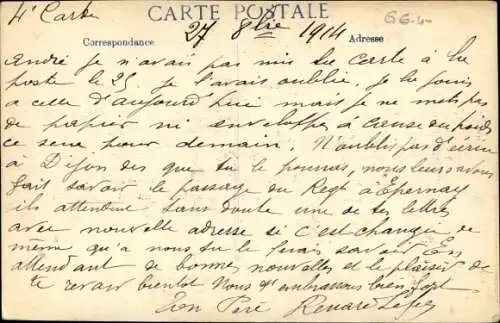 4e Carte
CARTE POSTALE
66-4-
27 8bre 1914
Correspondance
Adresse
André je n'avais pas mis ta carte à la
poste le 25. je l'avais oublié. je la joins
a celle d'aujourd'hui mais je ne mets pas
de papier ni enveloppe à cause du poids
ce sera pour demain. N'oublis pas d'écrire
à Dijon des que tu le pourras, nous leurs avons
fait savoir le passage du Regt à Epernay
ils attendent sans doute une de tes lettres
avec nouvelle adresse si c'est changé de
même qu'a nous tu le feras savoir En
attendant de bonnes nouvelles et le plaisir de
te revoir bientôt Nous t'embrassons bien fort
Ton Père Renard